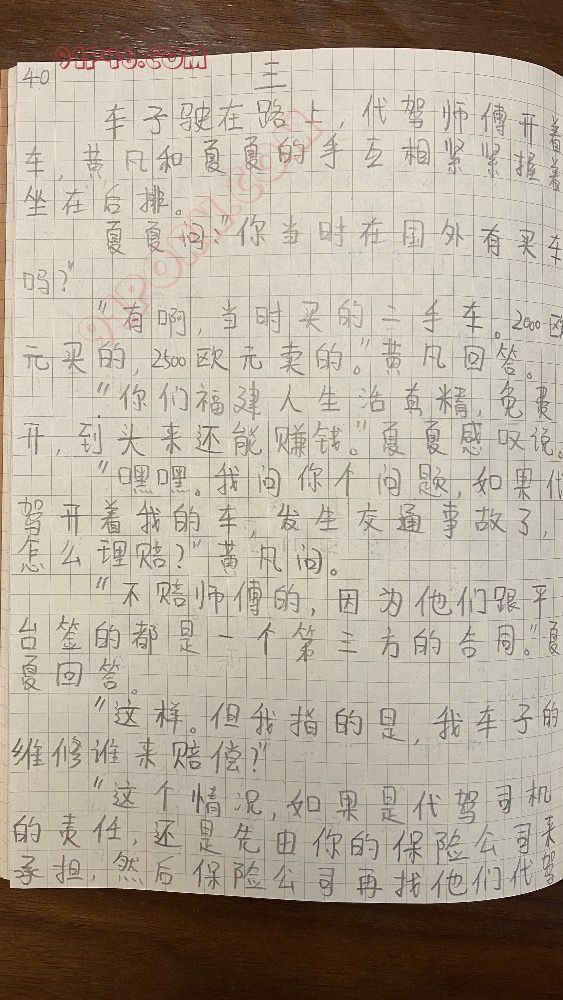 40
91P46.COM
三
车子驶在路上，代驾师傅开着
车，黄凡和夏夏的手互相紧紧握着
坐在后排。
夏夏问："你当时在国外有买车
吗？"
"有啊，当时买的二手车。2000欧
元买的，2500欧元卖的。"黄凡回答。
"你们福建人生活真精，免费
开，到头来还能赚钱。"夏夏感叹说。
"嘿嘿。我问你个问题，如果代
驾开着我的车，发生交通事故了，
怎么理赔？"黄凡问。
"不赔师傅的，因为他们跟平
台签的都是一个第三方的合同。"夏
夏回答。
"这样。但我指的是，我车子的
维修谁来赔偿？"
"这个情况，如果是代驾司机
的责任，还是先由你的保险公司来
承担，然后保险公司再找他们代驾